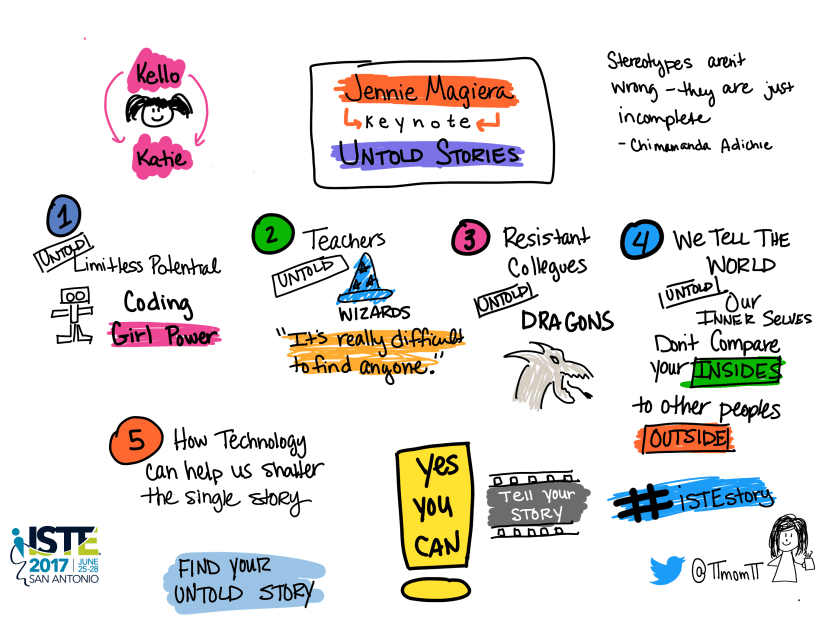 Kello
Katie
Jennie Magiera
Keynote
UNTOLD STORIES
Stereotypes aren't
wrong - they are just
incomplete
- Chimamanda Adichie
1
UNTOLD
Limitless Potential
Coding
Girl Power
2
Teachers
UNTOLD
WIZARDS
"It's really difficult
to find anyone."
3
Resistant
Collegues
UNTOLD
DRAGONS
4
WE TELL THE
WORLD
UNTOLD
Our
INNER SELVES
Don't Compare
your INSIDES
to other peoples
OUTSIDE
5
How Technology
can help us shatter
the single story
FIND YOUR
UNTOLD STORY
Yes
YOU
CAN
Tell your
STORY
#iSTEstory
@TTmomTT
ISTE
2017 | JUNE 25-28
SAN ANTONIO